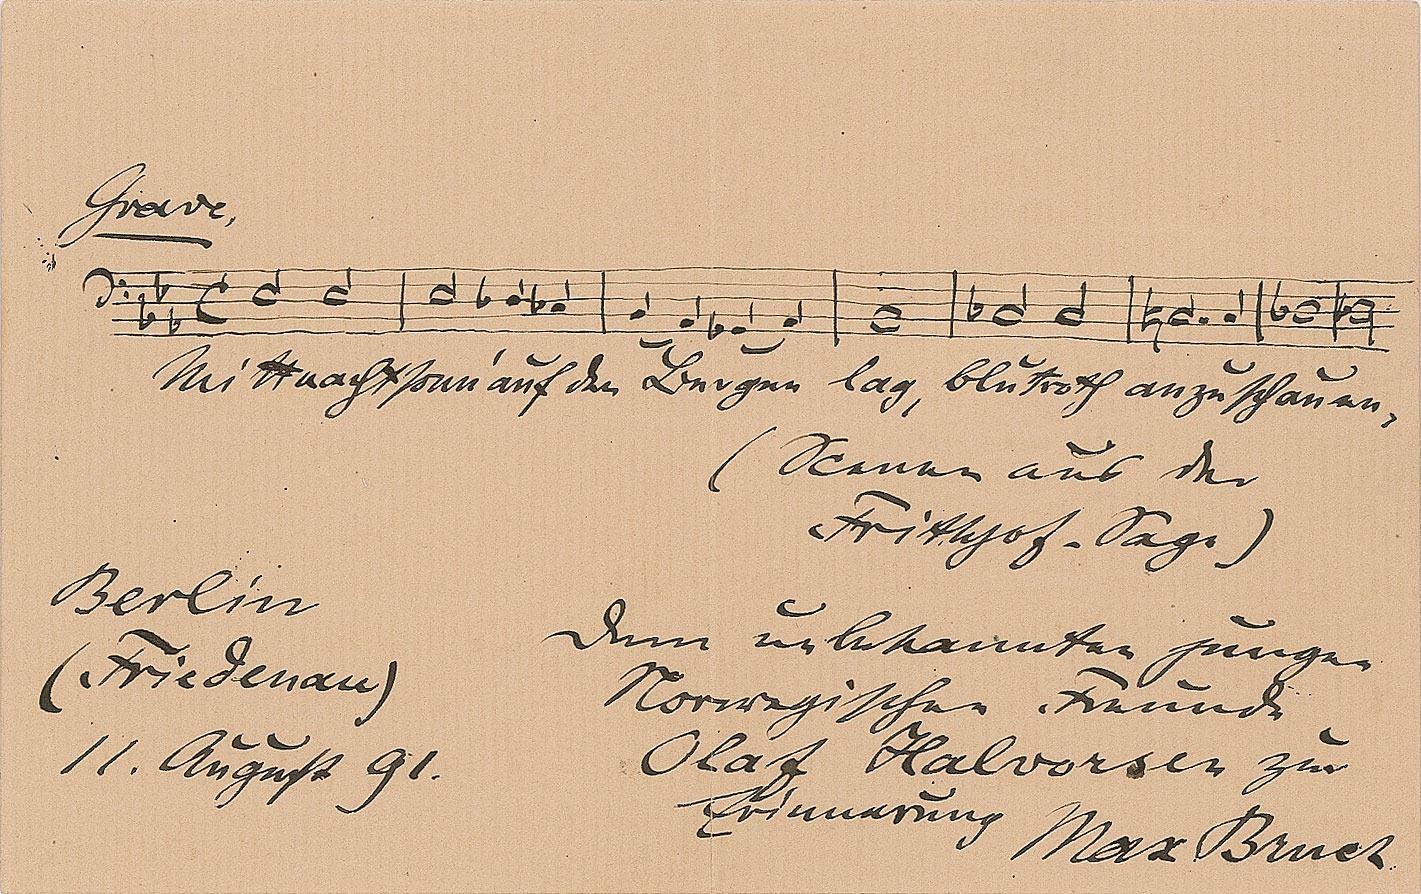 Grave.
Mitternachtsonn' auf den Bergen lag, blutroth anzuschauen,
(Scenen aus der
Frithjof-Sage)
Berlin
(Friedenau)
11. August 91.
Dem unbekannten jungen
Norwegischen Freunde
Olaf Halvorsen zur
Erinnerung
Max Bruch